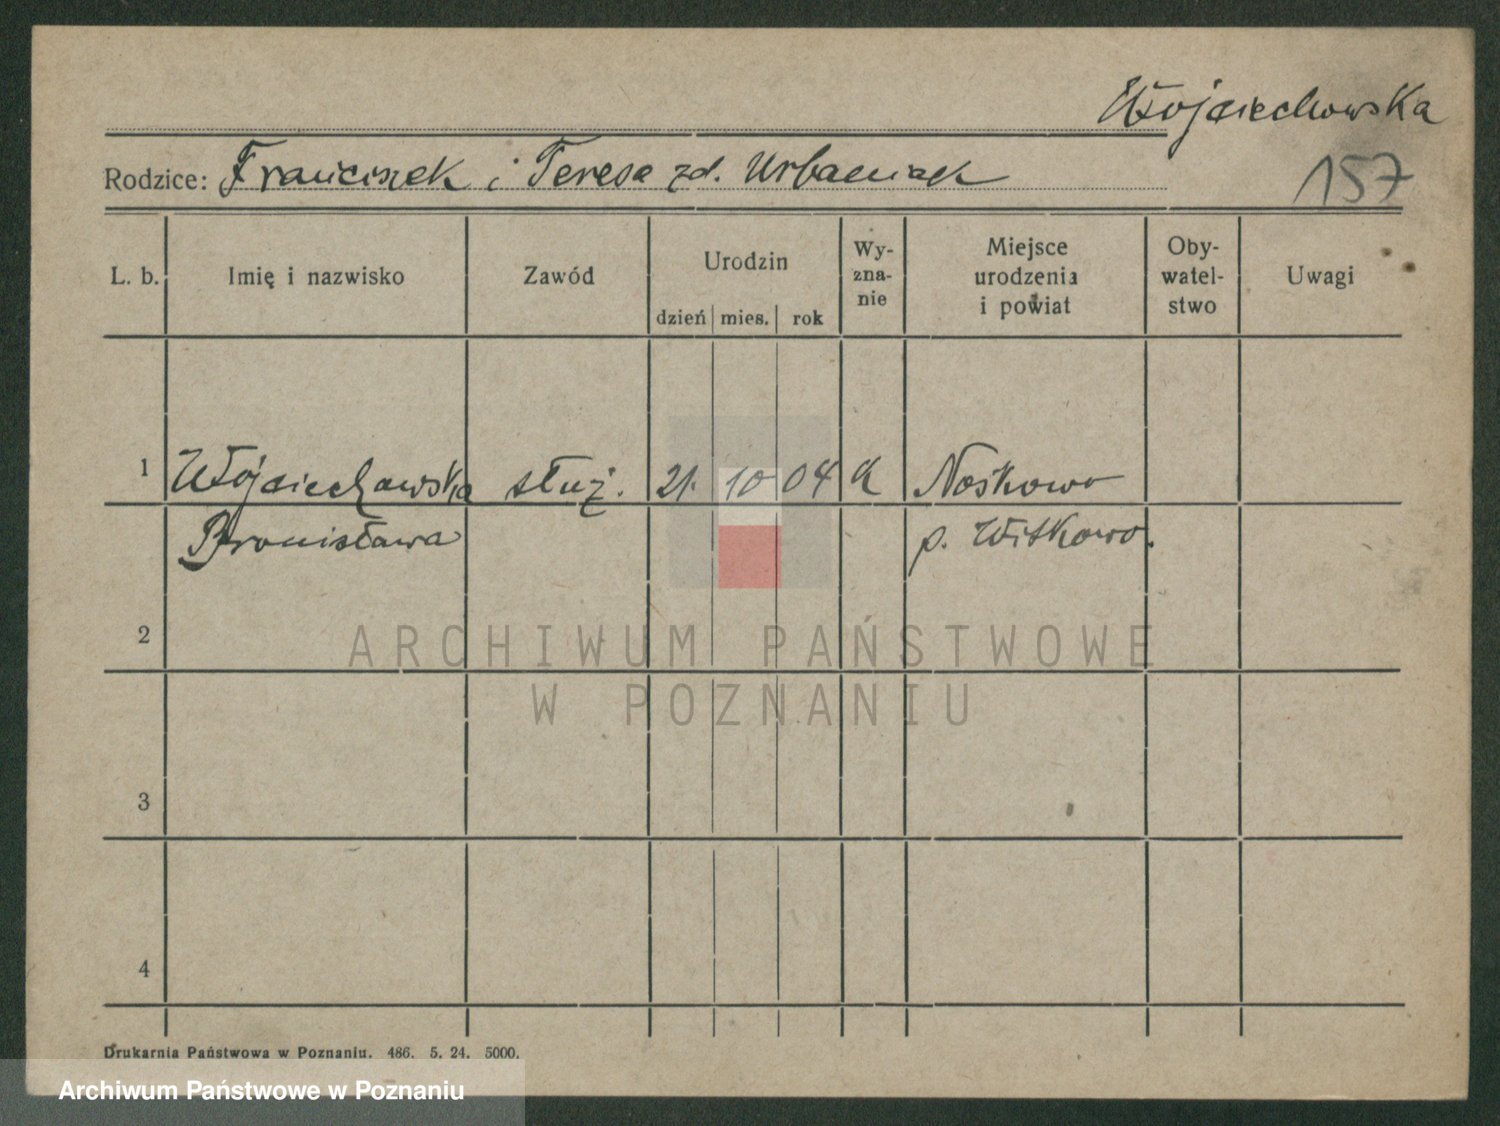 Wojciechowska
Rodzice: Franciszek i Teresa zd. Urbaniak
157
L. b. Imię i nazwisko Zawód Urodzin dzień mies. rok Wy-zna-nie Miejsce urodzenia i powiat Oby-watel-stwo Uwagi
1 Wojciechowska służ. 21. 10 04 k Noskowo
Bronisława p. Witkowo.
2
ARCHIWUM PAŃSTWOWE
W POZNANIU
3
4
Drukarnia Państwowa w Poznaniu. 486. 5. 24. 5000.
Archiwum Państwowe w Poznaniu